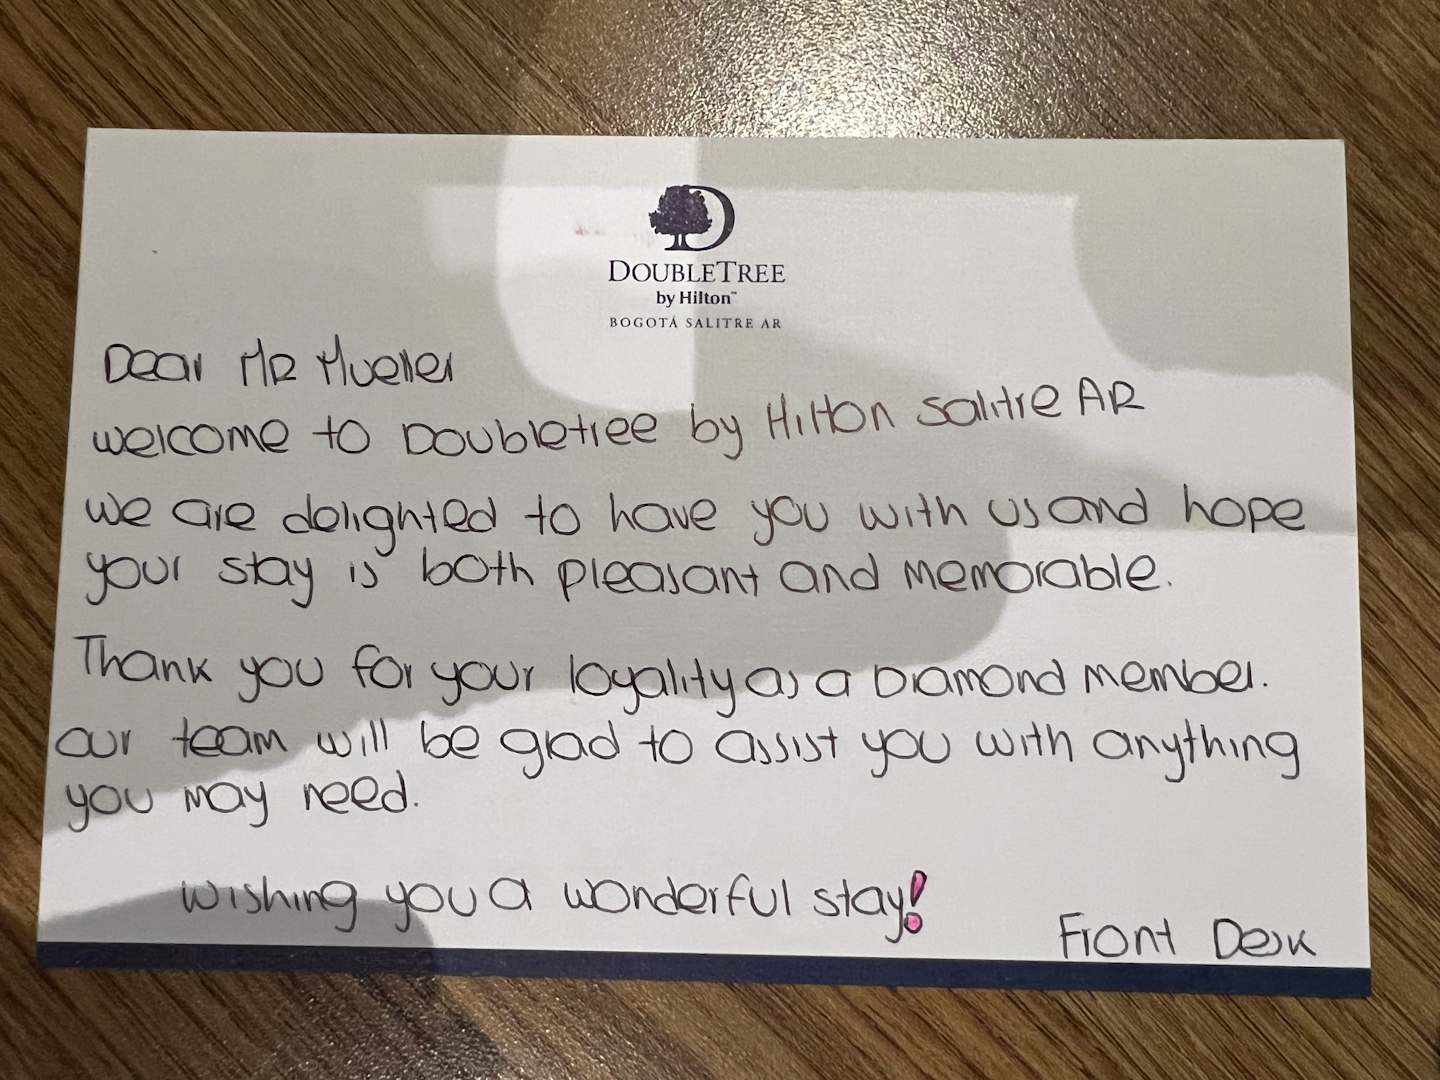 DOUBLETREE
by Hilton™
BOGOTÁ SALITRE AR
Dear MR Mueller
welcome to Doubletree by Hilton Salitre AR
we are delighted to have you with us and hope
your stay is both pleasant and memorable.
Thank you for your loyality as a Diamond member.
our team will be glad to assist you with anything
you may need.
wishing you a wonderful stay!
Front Desk